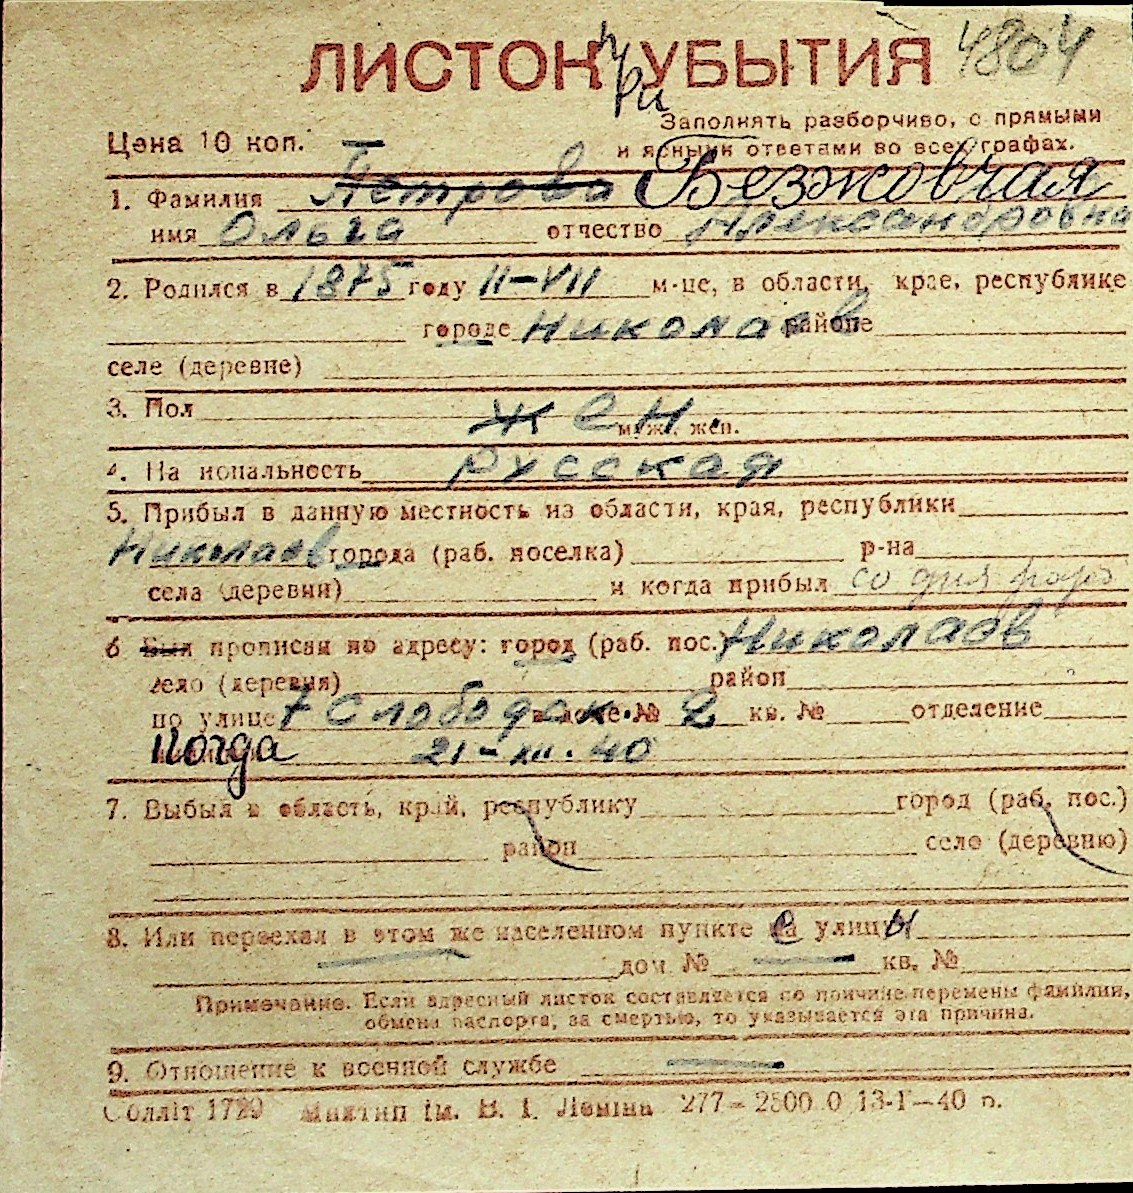 ЛИСТОК при УБЫТИЯ 4804
Заполнять разборчиво, с прямыми
Цена 10 коп. и ясными ответами во всех графах.
1. Фамилия Петрова Безжовчая
имя Ольга отчество Александровна
2. Родился в 1875 году II-VII м-це, в области, крае, республике
городе Николаев районе
селе (деревне)
3. Пол жен. муж., жен.
4. На иональность Русская
5. Прибыл в данную местность из области, края, республики
Николаев города (раб. поселка) р-на
села (деревни) и когда прибыл со дня
6 Был прописан по адресу: город (раб. пос.) Николаев
село (деревня) район
по улице 7 Слободск. в доме № 2 кв. № отделение
когда 21-XII.40
7. Выбыл в область, край, республику город (раб. пос.)
район село (деревню)
8. Или переехал в этом же населенном пункте с улицы
дом № кв. №
Примечание. Если адресный листок составляется по причине перемены фамилии,
обмена паспорта, за смертью, то указывается эта причина.
9. Отношение к военной службе
Облліт 1729 ім. В. І. Леніна 277-2500 0 13-I-40 р.